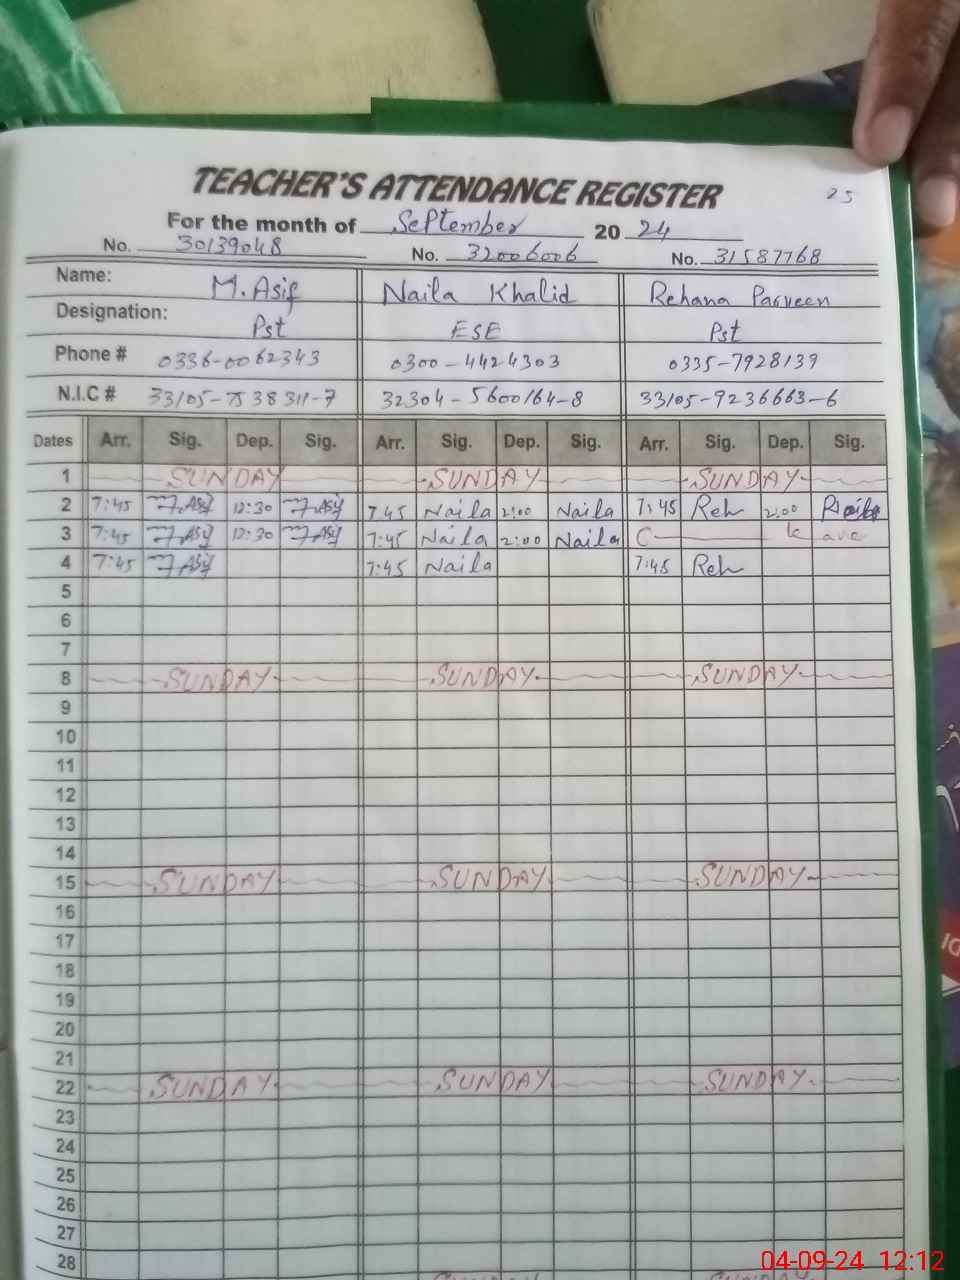 25
TEACHER'S ATTENDANCE REGISTER
For the month of September 20 24
No. 30139048 No. 32006006 No. 31587768
Name: M. Asif Naila Khalid Rehana Parveen
Designation: Pst ESE Pst
Phone # 0336-0062343 0300-4424303 0335-7928139
N.I.C # 33105-7538311-7 32304-5600164-8 33105-9236663-6
Dates Arr. Sig. Dep. Sig. Arr. Sig. Dep. Sig. Arr. Sig. Dep. Sig.
1 SUNDAY SUNDAY SUNDAY
2 7:45 M.Asif 12:30 M.Asif 7:45 Naila 2:00 Naila 7:45 Reh 2:00
3 7:45 M.Asif 12:30 M.Asif 7:45 Naila 2:00 Naila C
4 7:45 M.Asif 7:45 Naila 7:45 Reh
5
6
7
8 SUNDAY SUNDAY SUNDAY
9
10
11
12
13
14
15 SUNDAY SUNDAY SUNDAY
16
17
18
19
20
21
22 SUNDAY SUNDAY SUNDAY
23
24
25
26
27
28
04-09-24 12:12